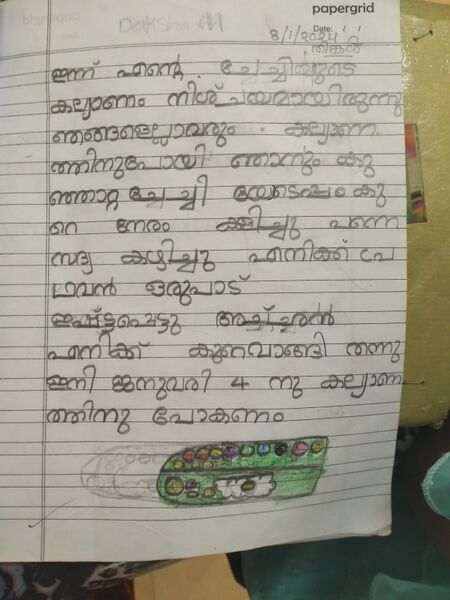 papergrid
Daksha M
Date: / /
8/1/2024
തിങ്കൾ
ഇന്ന് എന്റെ ചേച്ചിയുടെ
കല്യാണം നിശ്ചയമായിരുന്നു
ഞങ്ങളെല്ലാവരും കല്യാണ
ത്തിനുപോയി ഞാനും കു
ഞ്ഞാറ്റ ചേച്ചി യോടൊപ്പം കു
റെ നേരം കളിച്ചു പന്നെ
സദ്യ കഴിച്ചു എനിക്ക് പ്ര
ഥവൻ ഒരുപാട്
ഇഷ്ട്ടപ്പെട്ടു അച്ച്ചൻ
എനിക്ക് കുറെവാങ്ങി തന്നു
ഇനി ജനുവരി 4 നു കല്യാണ
ത്തിനു പോകണം